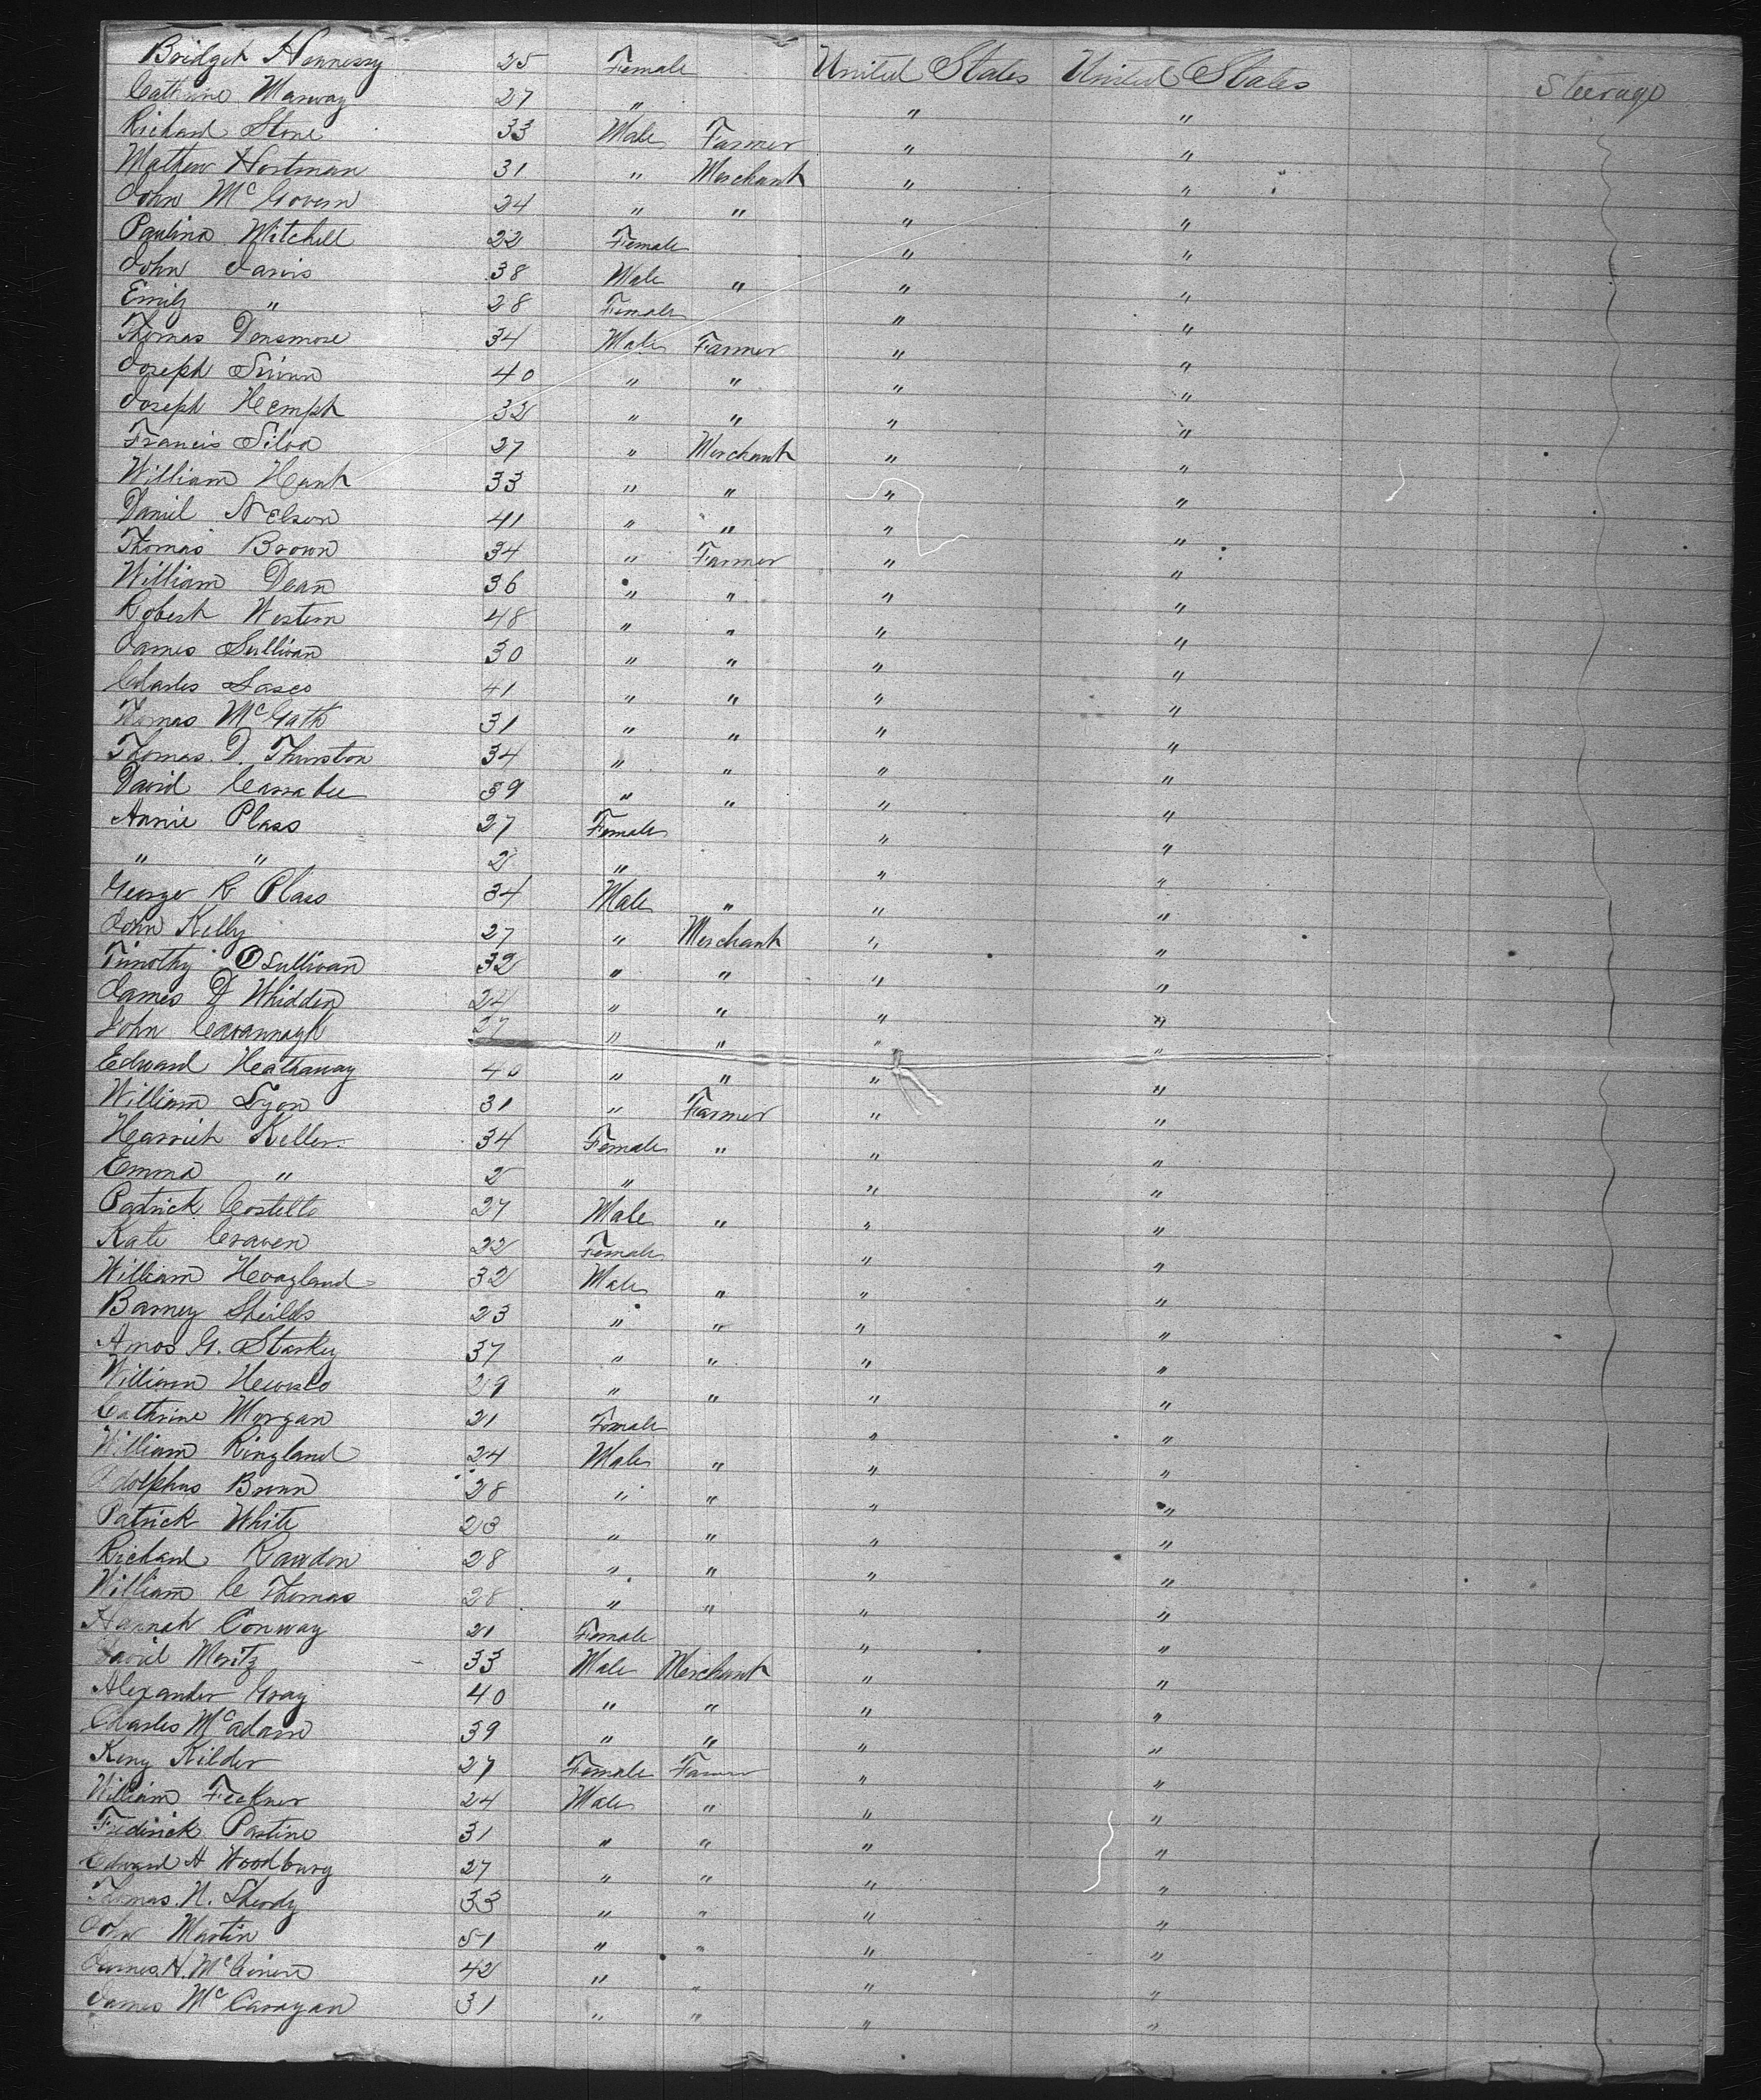 Bridget Hennessy 25 Female United States United States Steerage
Cathrine Marway 27 " " "
Richard Stone 33 Male Farmer " "
Mathew Hortman 31 " Merchant " "
John McGovern 24 " " " "
Paulina Mitchell 22 Female " "
John Jarvis 38 Male " " "
Emily " 28 Female " "
Thomas Densmore 34 Male Farmer " "
Joseph 40 " " " "
Joseph Hemph 32 " " " "
Francis Silva 27 " Merchant " "
William Hank 33 " " " "
Daniel Nelson 41 " " " "
Thomas Brown 34 " Farmer " "
William Dean 36 " " " "
Robert Western 48 " " " "
James Sullivan 30 " " " "
Charles 41 " " " "
Thomas McGath 31 " " " "
Thomas D. Thurston 34 " " " "
David 39 " " " "
Annie Plass 27 Female " "
" " 2 " " "
George R Plass 34 Male " " "
John Kelly 27 " Merchant " "
Timothy OSullivan 32 " " " "
James D Whidden 24 " " " "
John Cavannagh 27 " " " "
Edward Heathaway 40 " " " "
William Lyon 31 " Farmer " "
Harriet Keller 34 Female " " "
Emma " 2 " " "
Patrick Costello 27 Male " " "
Kate Craven 22 Female " "
William Hoagland 32 Male " " "
Barney Sheilds 23 " " " "
Amos G. Starkey 37 " " " "
William 29 " " " "
Cathrine Morgan 21 Female " "
William Ringland 24 Male " " "
Adolphus Brown 28 " " " "
Patrick White 23 " " " "
Richard Rawdon 28 " " " "
William C Thomas 28 " " " "
Hannah Conway 21 Female " "
David Moritz 33 Male Merchant " "
Alexander Gray 40 " " " "
Charles McAdam 39 " " " "
Kilder 27 Female Farmer " "
William Feckner 24 Male " " "
Frederick Pastine 31 " " " "
Edward H Woodbury 27 " " " "
Thomas N. 33 " " " "
John Martin 51 " " " "
James H. 42 " " " "
James McCaragan 31 " " " "